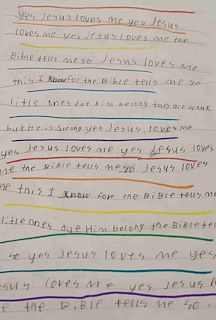 yes Jesus loves me yes Jesus
loves me yes Jesus loves me the
Bible tells me so Jesus loves me
this I know for the Bible tells me so
litle ones due him belong they are weak
but he is strong yes Jesus loves me
yes Jesus loves me yes Jesus lov
me the Bible tells me so Jesus loves
me this I know for the Bible tells me
little ones due Him belong the Bible tel
so yes Jesus loves me yes
sus loves me yes Jesus l
e the Bible tells me so.